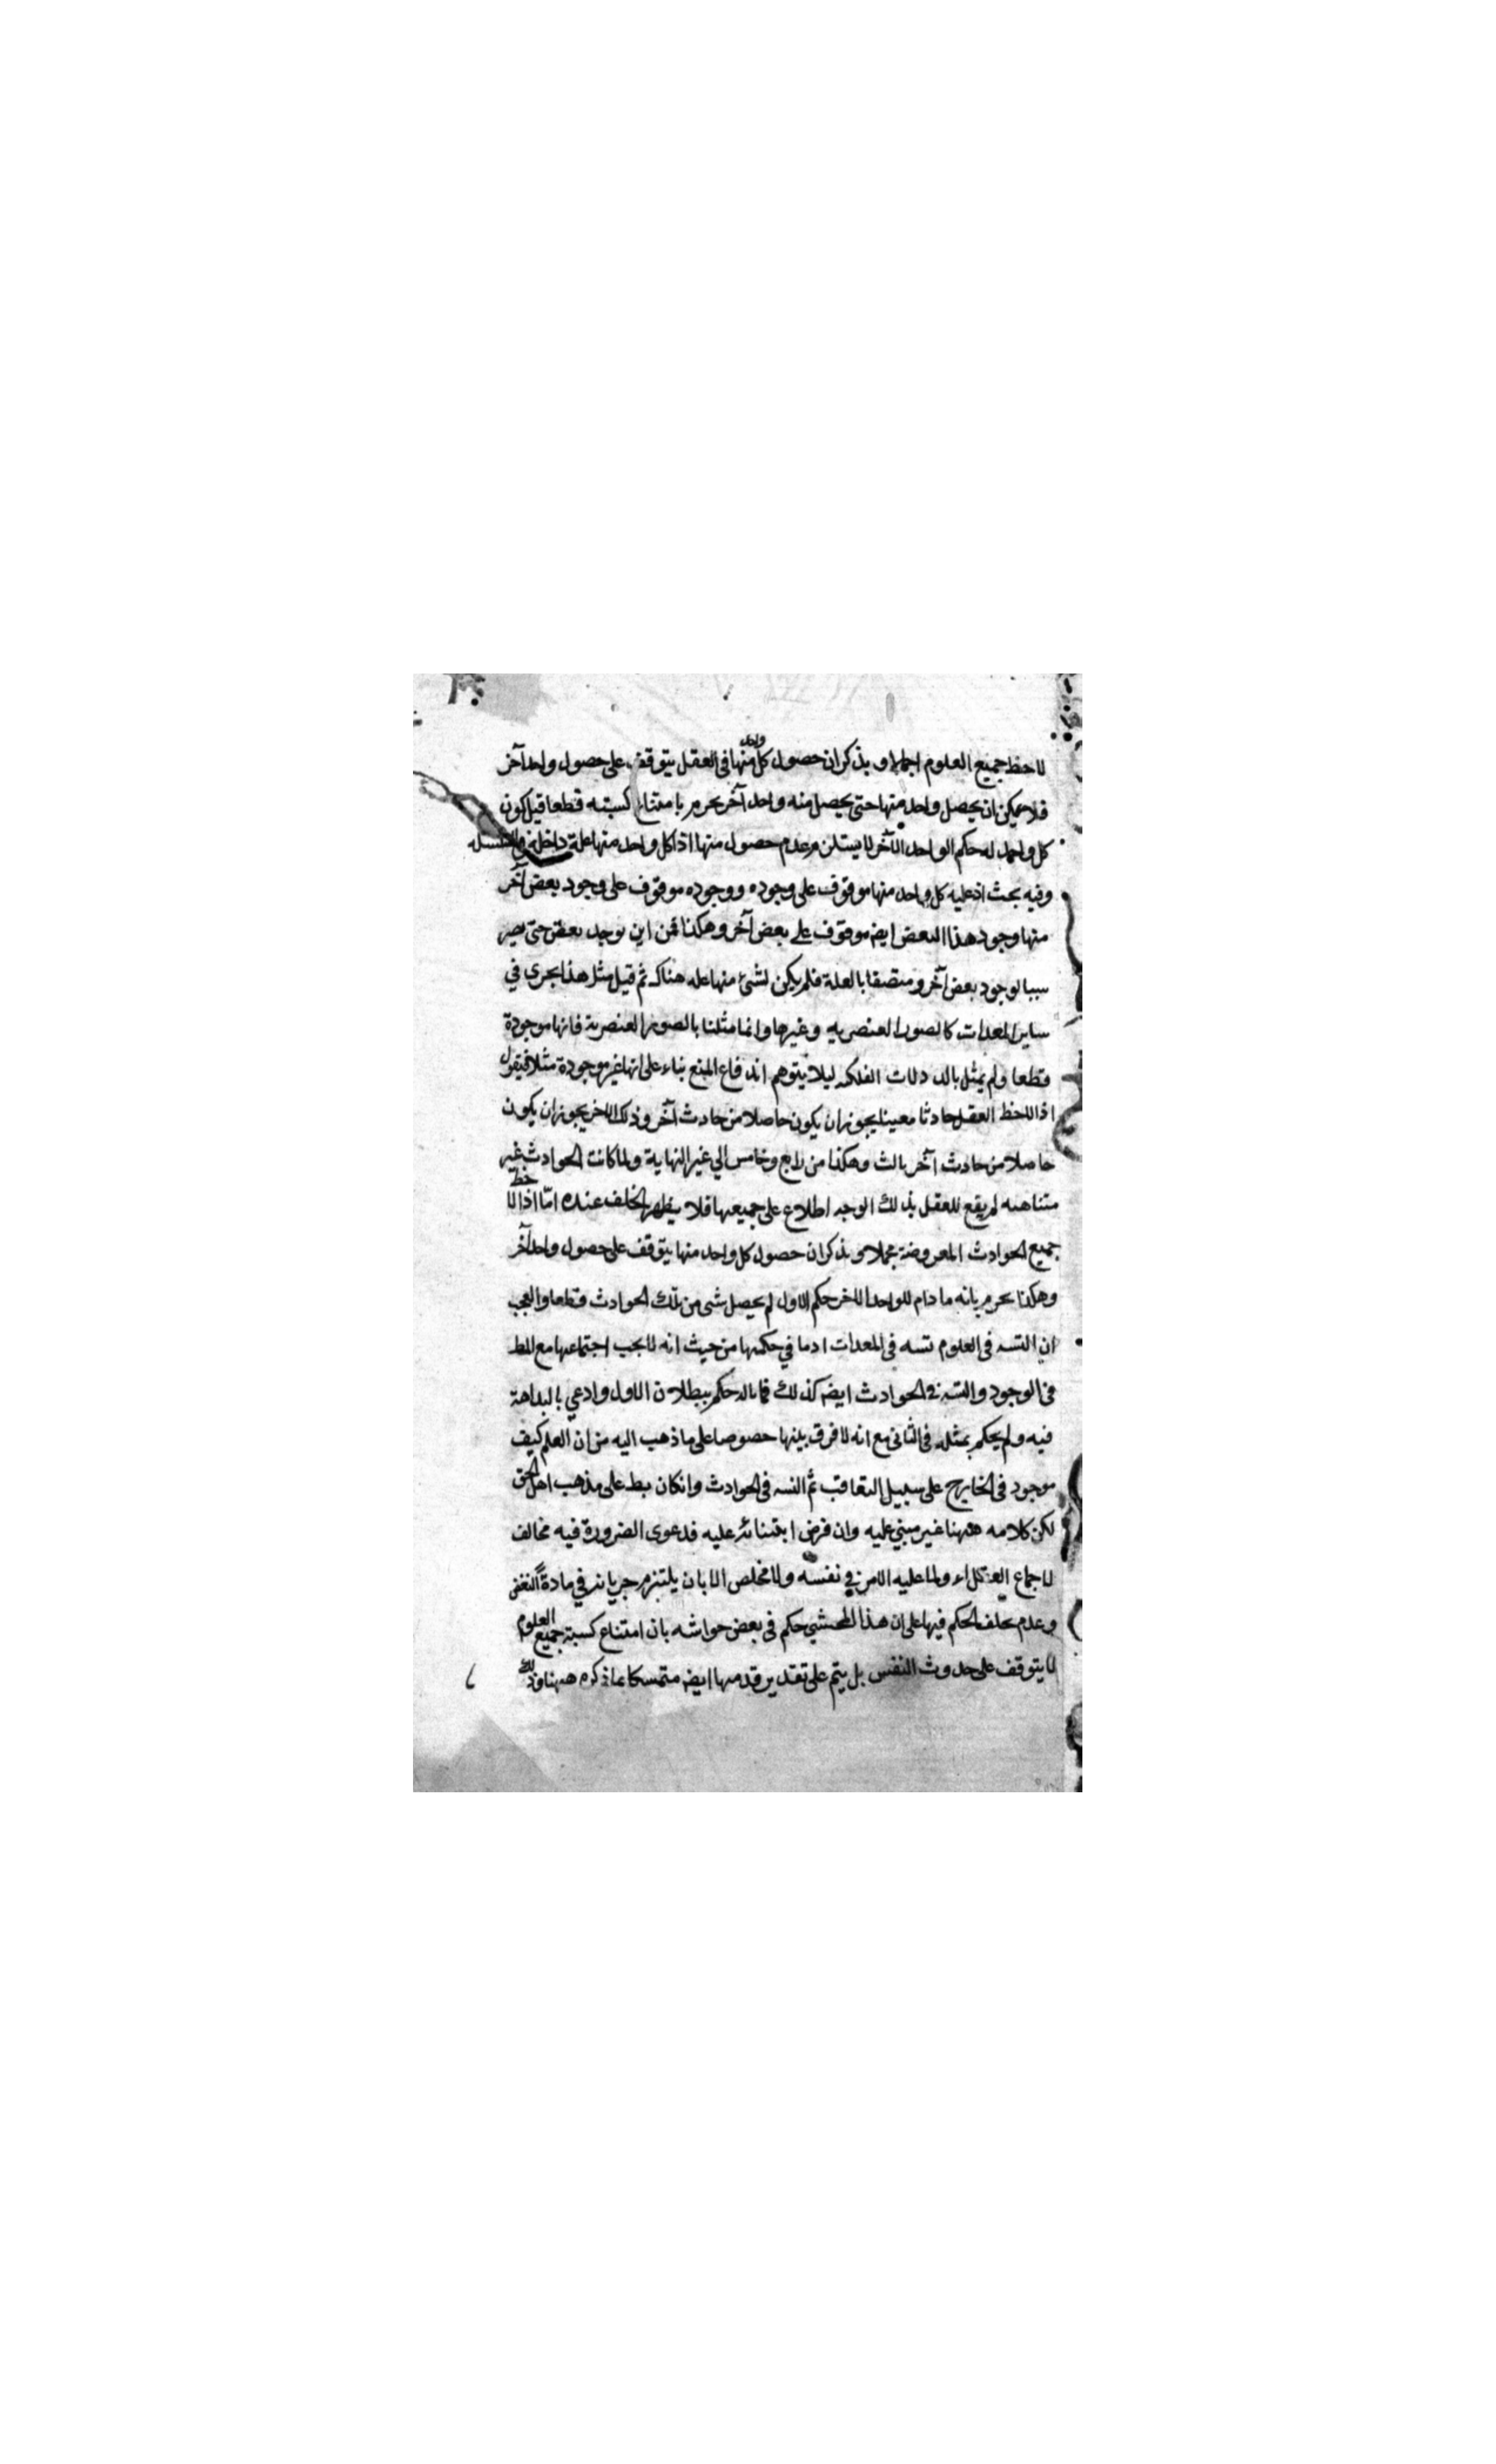 لاحظ جميع العلوم اجمالا و يذكر ان حصول كل واحد منها فى العقل يتوقف على حصول واحد آخر
فلا يمكن ان يحصل واحد منها حتى يحصل منه واحد آخر يحرم بامتناع كسبته قطعا قيل كون
كل واحد له حكم الواحد الآخر لا يستلزم عدم حصول منها اذا كل واحد منها علة داخلة فى السلسله
وفيه بحث اذ عليه كل واحد منها موقوف على وجوده و وجوده موقوف على وجود بعض آخر
منها وجود هذا البعض ايضه موقوف على بعض آخر وهكذا فمن اين يوجد بعض حتى يصير
سببا لوجود بعض آخر و متصفا بالعلة فلم يكن لشئ منها عله هناك ثم قيل مثل هذا يجرى في
ساير المعدات كالصور العنصريه وغيرها وانما مثلنا بالصور العنصرية فانها موجودة
قطعا ولم يمثل بالدولات الفلكيه ليلا يتوهم اندفاع المنع بناء على انها غير موجودة مثلا فيقول
اذا لاحظ العقل حادثا معينا يجوز ان يكون حاصلا من حادث آخر وذلك الاخر يجوز ان يكون
حاصلا من حادث آخر ثالث وهكذا من رابع وخامس الي غير النهاية ولما كانت الحوادث غير
متناهيه لم يقع للعقل بذلك الوجه اطلاع على جميعها فلا يظهر الخلف عنده امّا اذا لاحظ
جميع الحوادث المعروضة مجملا و يذكر ان حصول كل واحد منها يتوقف على حصول واحد آخر
وهكذا يحرم بانه ما دام للواحد الاخر حكم الاول لم يحصل شى من تلك الحوادث قطعا والعجب
ان التسه فى العلوم تسه فى المعدات او ما في حكمها من حيث انه لا يجب اجتماعها مع المط
فى الوجود والتسه فى الحوادث ايضه كذلك فما باله حكم ببطلان الاول وادعي بالبداهة
فيه ولم يحكم بمثله فى الثانى مع انه لا فرق بينها خصوصا على ما ذهب اليه من ان العلم كيف
موجود فى الخارج على سبيل التعاقب ثم التسه فى الحوادث وان كان بط على مذهب اهل الحق
لكن كلامه ههنا غير مبني عليه وان فرض ابتنائه عليه فدعوى الضرورة فيه مخالف
لاجماع العقلاء ولما عليه الامر في نفسه ولا مخلص الا بان يلتزم جريانه في مادة النقض
وعدم تخلف الحكم فيها على ان هذا المحشي حكم فى بعض حواشه بان امتناع كسبة جميع العلوم
لا يتوقف على حدوث النفس بل يتم على تقدير قدمها ايضه متمسكا بما ذكره ههنا وذلك